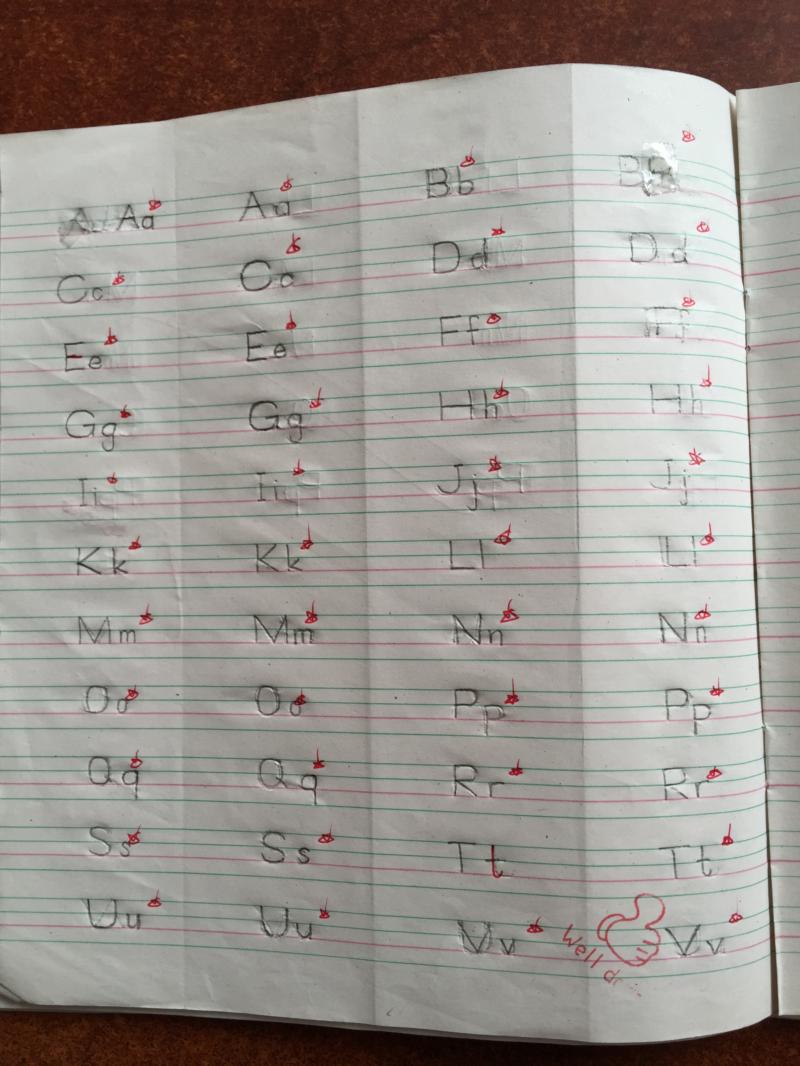 A Aa Aa Bb B
Cc Cc Dd Dd
Ee Ee Ff Ff
Gg Gg Hh Hh
Ii Ii Jj Jj
Kk Kk Ll Ll
Mm Mm Nn Nn
Oo Oo Pp Pp
Qq Qq Rr Rr
Ss Ss Tt Tt
Uu Uu Vv Vv
Well